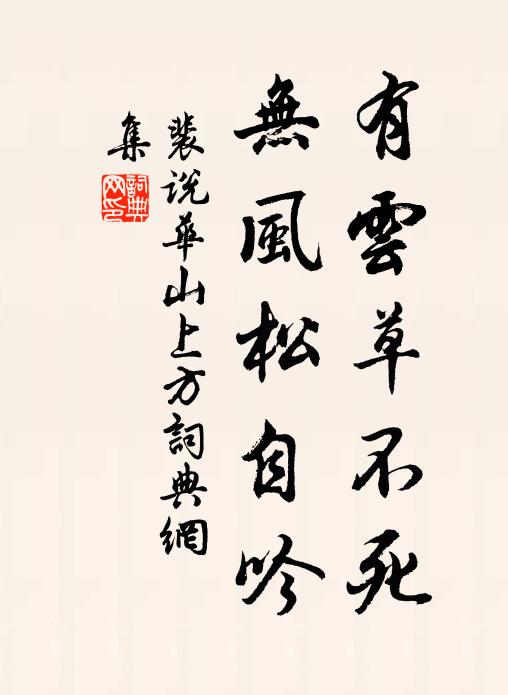 有雲草不死
無風松自吟
裴説華山上方詞典網
集
詞典
网印